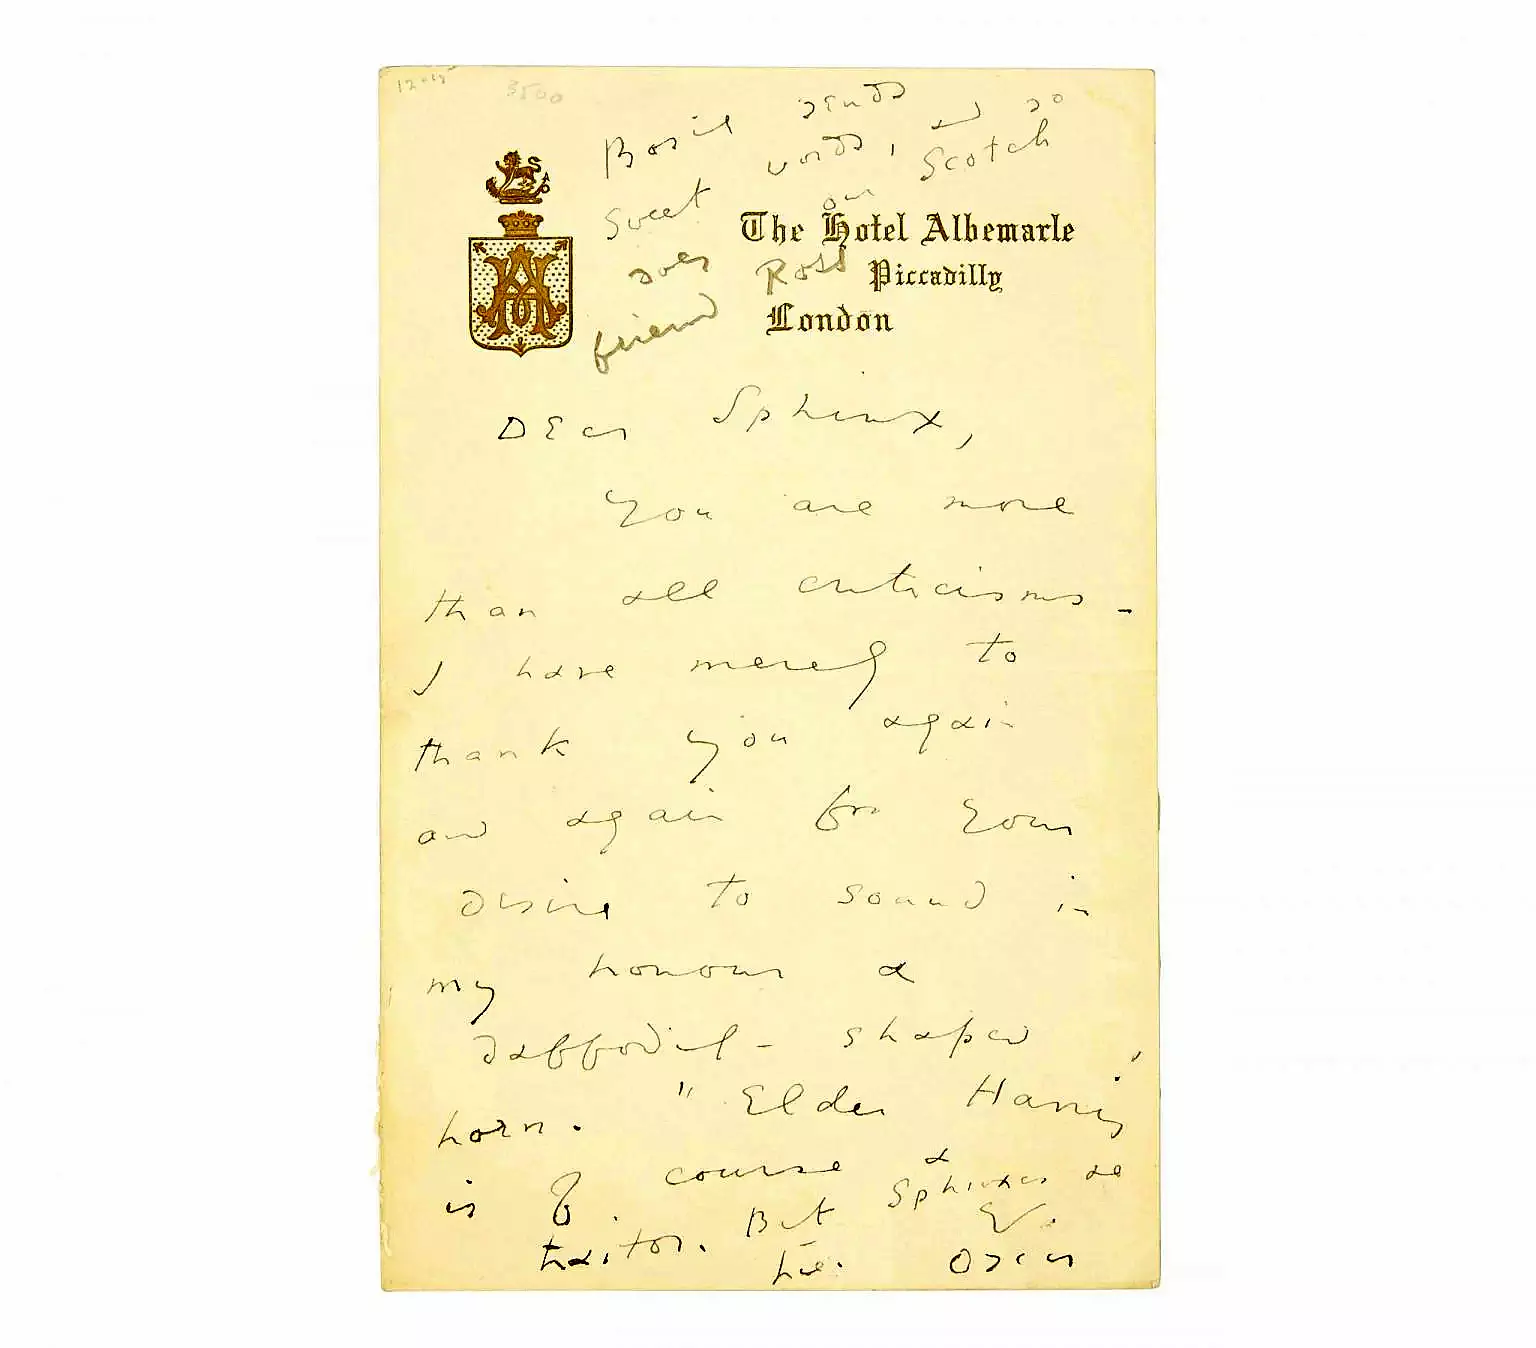 12-15
3500
Bosie sends
sweet words, and so
does our Scotch
friend Ross
The Hotel Albemarle
Piccadilly
London
Dear Sphinx,
You are more
than all criticisms -
I have merely to
thank you again
and again for your
desire to sound in
my honour a
daffodil - shaped
horn. "Elder Harris"
is of course a
traitor. But Sphinxes are
true. Ev.
Oscar